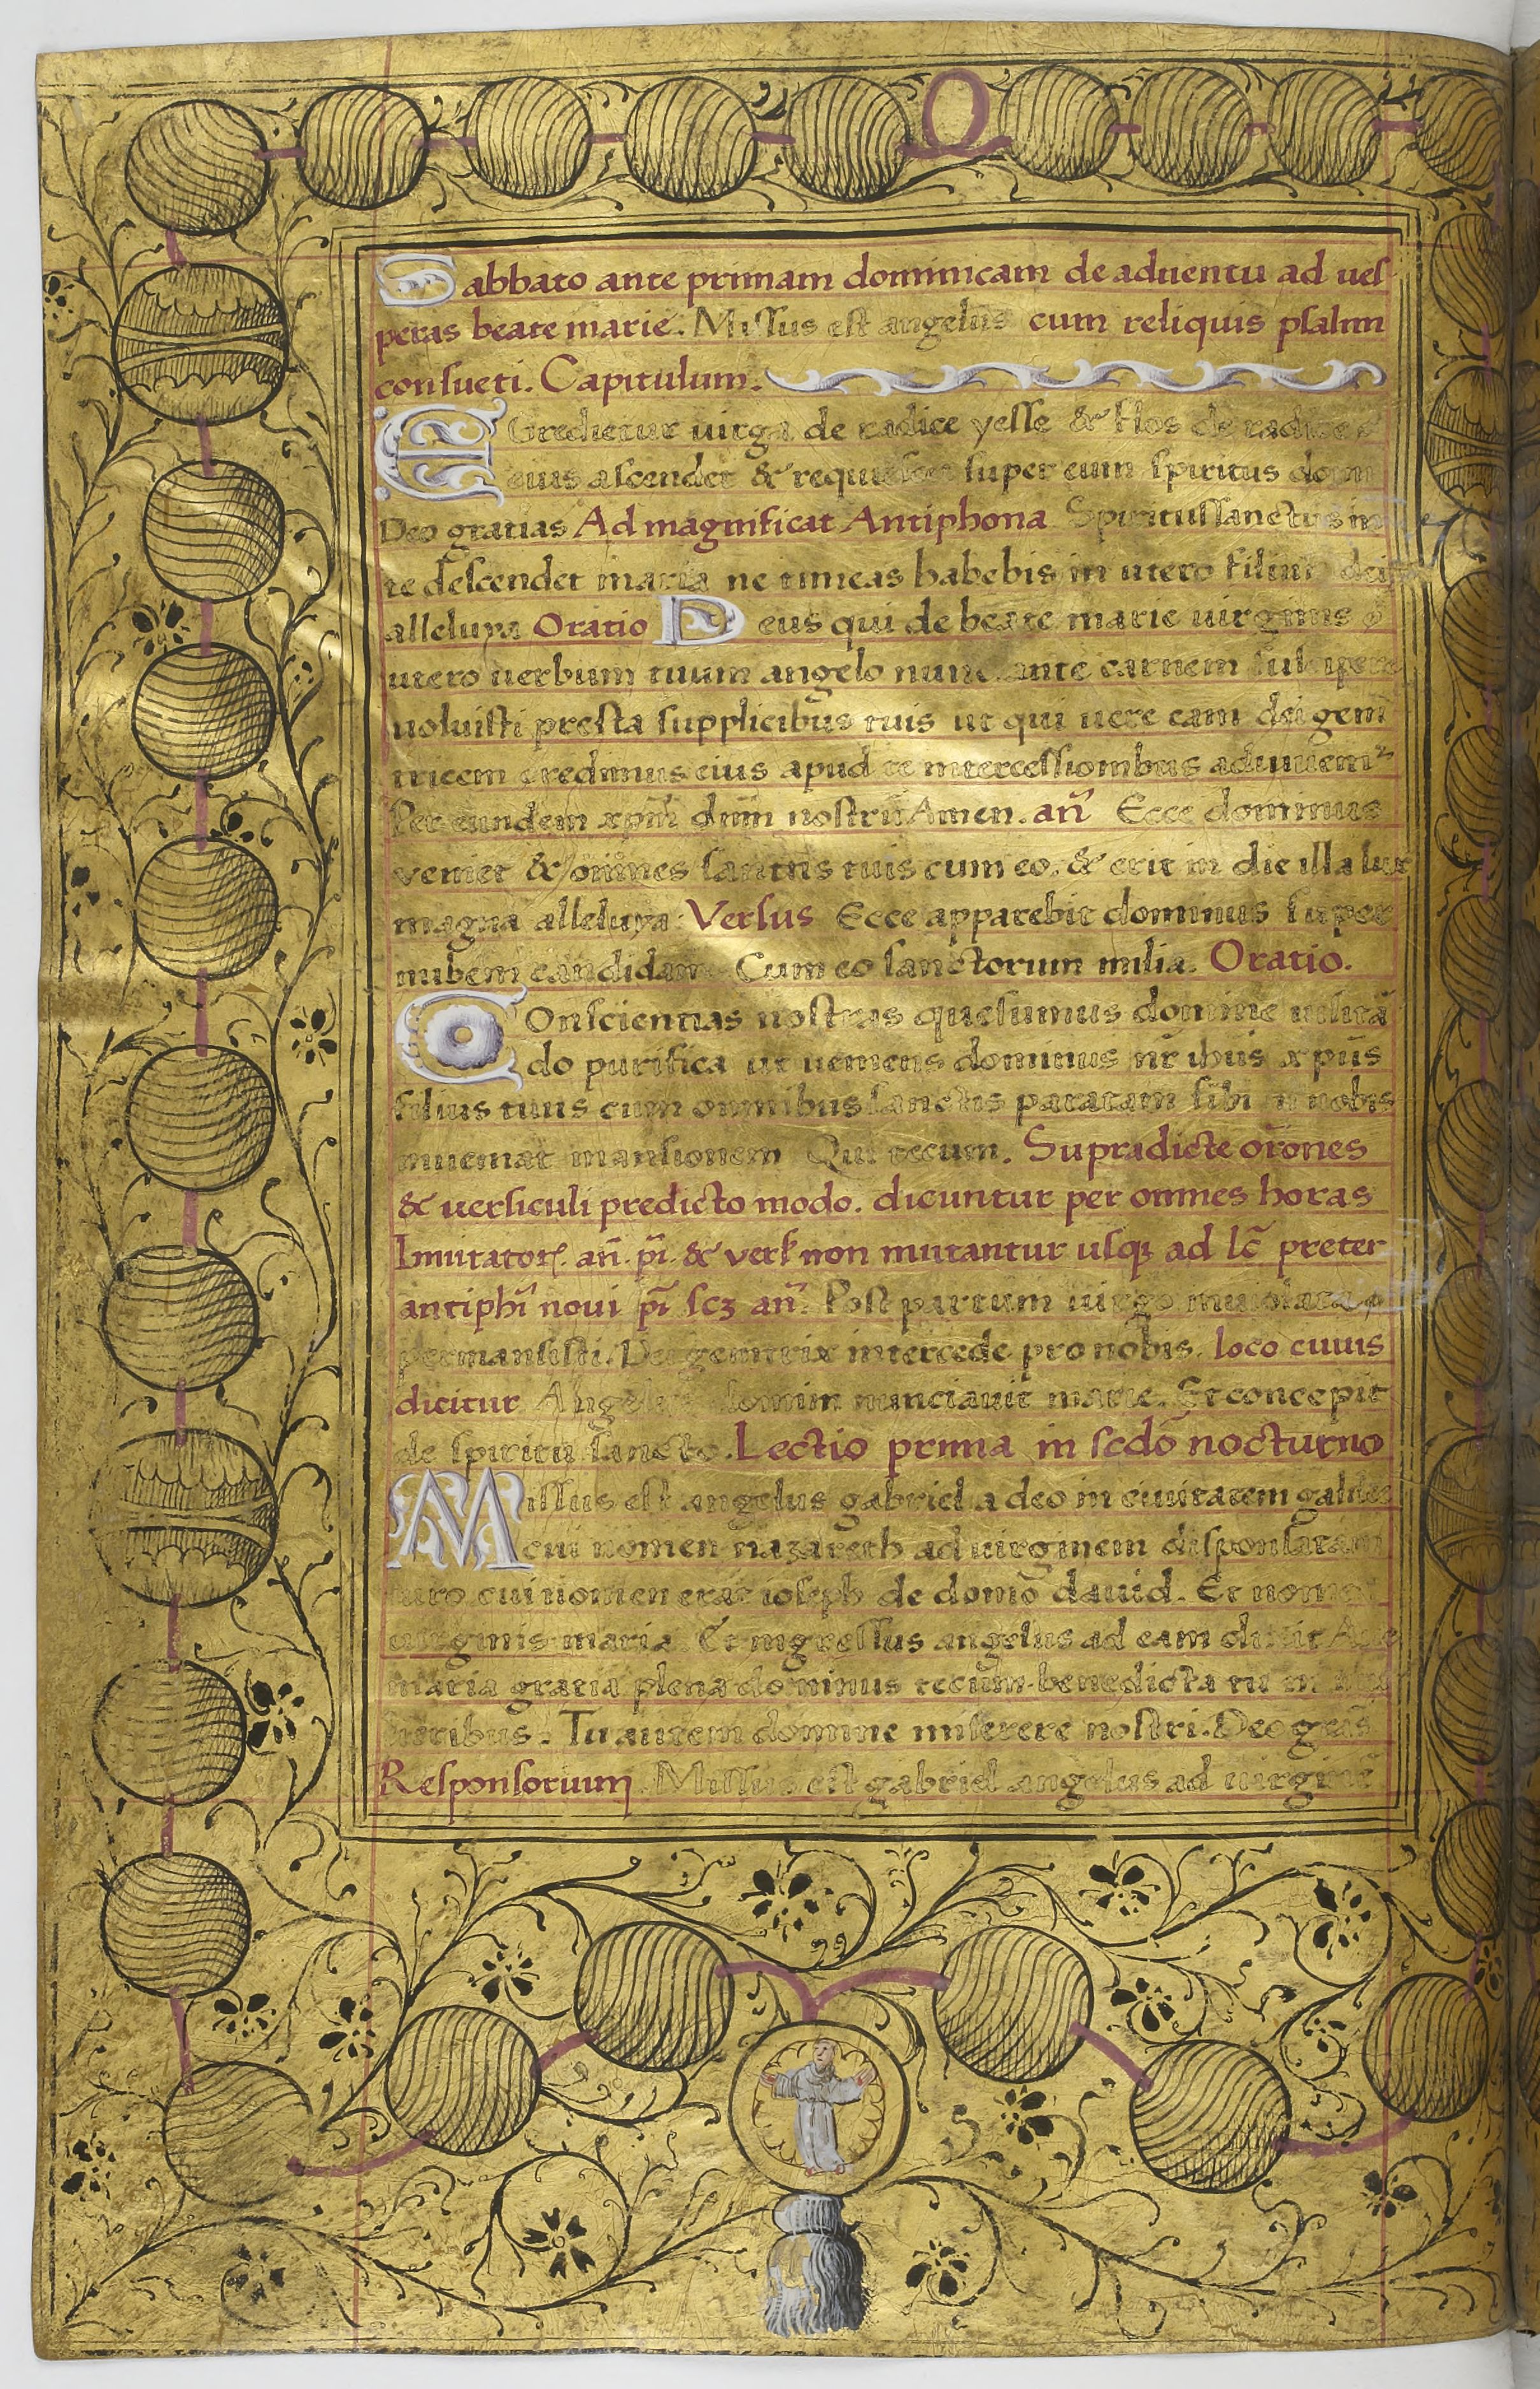 Sabbato ante primam dominicam de aduentu ad ues
peras beate marie. Missus est angelus cum reliquis psalmi
consueti. Capitulum.
EGredietur uirga de radice yesse & flos de radice
eius ascendet & requiescet super eum spiritus domi
Deo gratias Ad magnificat Antiphona Spiritussanctus in
te descendet maria ne timeas habebis in utero filiu dei
alleluya Oratio Deus qui de beate marie uirginis
utero uerbum tuum angelo nunciante carnem suscipere
uoluisti presta supplicibus tuis ut qui uere eam dei geni
tricem credimus eius apud te intercessionibus adiuuem
Per eundem xpm dnm nostrū Amen. an̄ Ecce dominus
veniet & omnes sanctus tuis cum eo. & erit in die illa lux
magna alleluya Versus Ecce apparebit dominus super
nubem candidam Cum eo sanctorum milia. Oratio.
COnscientias nostras quesumus domine uisita
do purifica ut ueniens dominus nr̄ ihus xpūs
filius tuus cum omnibus sanctis paratam sibi in nobis
inueniat mansionem Qui tecum. Supradicte or̄ones
& uersiculi predicto modo. dicuntur per omnes horas
Inuitator. an̄. p̄i. & vers non mutantur usqꝫ ad lc̄ preter
antiph̄ noui p̄i scꝫ an̄. Post partum uirgo inuiolata
permansisti. Dei genitrix intercede pro nobis. loco cuius
dicitur Angelus domini nunciauit marie. Et concepit
de spiritu sancto. Lectio prima in scd̄o nocturno
Missus est angelus gabriel a deo in ciuitatem galilee
cui nomen nazareth ad uirginem disponsatam
uiro cui nomen erat ioseph de domo dauid. Et nomen
uirginis maria Et ingressus angelus ad eam dixit Aue
maria gratia plena dominus tecum benedicta tu in mu
lieribus. Tu autem domine miserere nostri. Deo gras̄
Responsorium. Missus est gabriel angelus ad uirginē